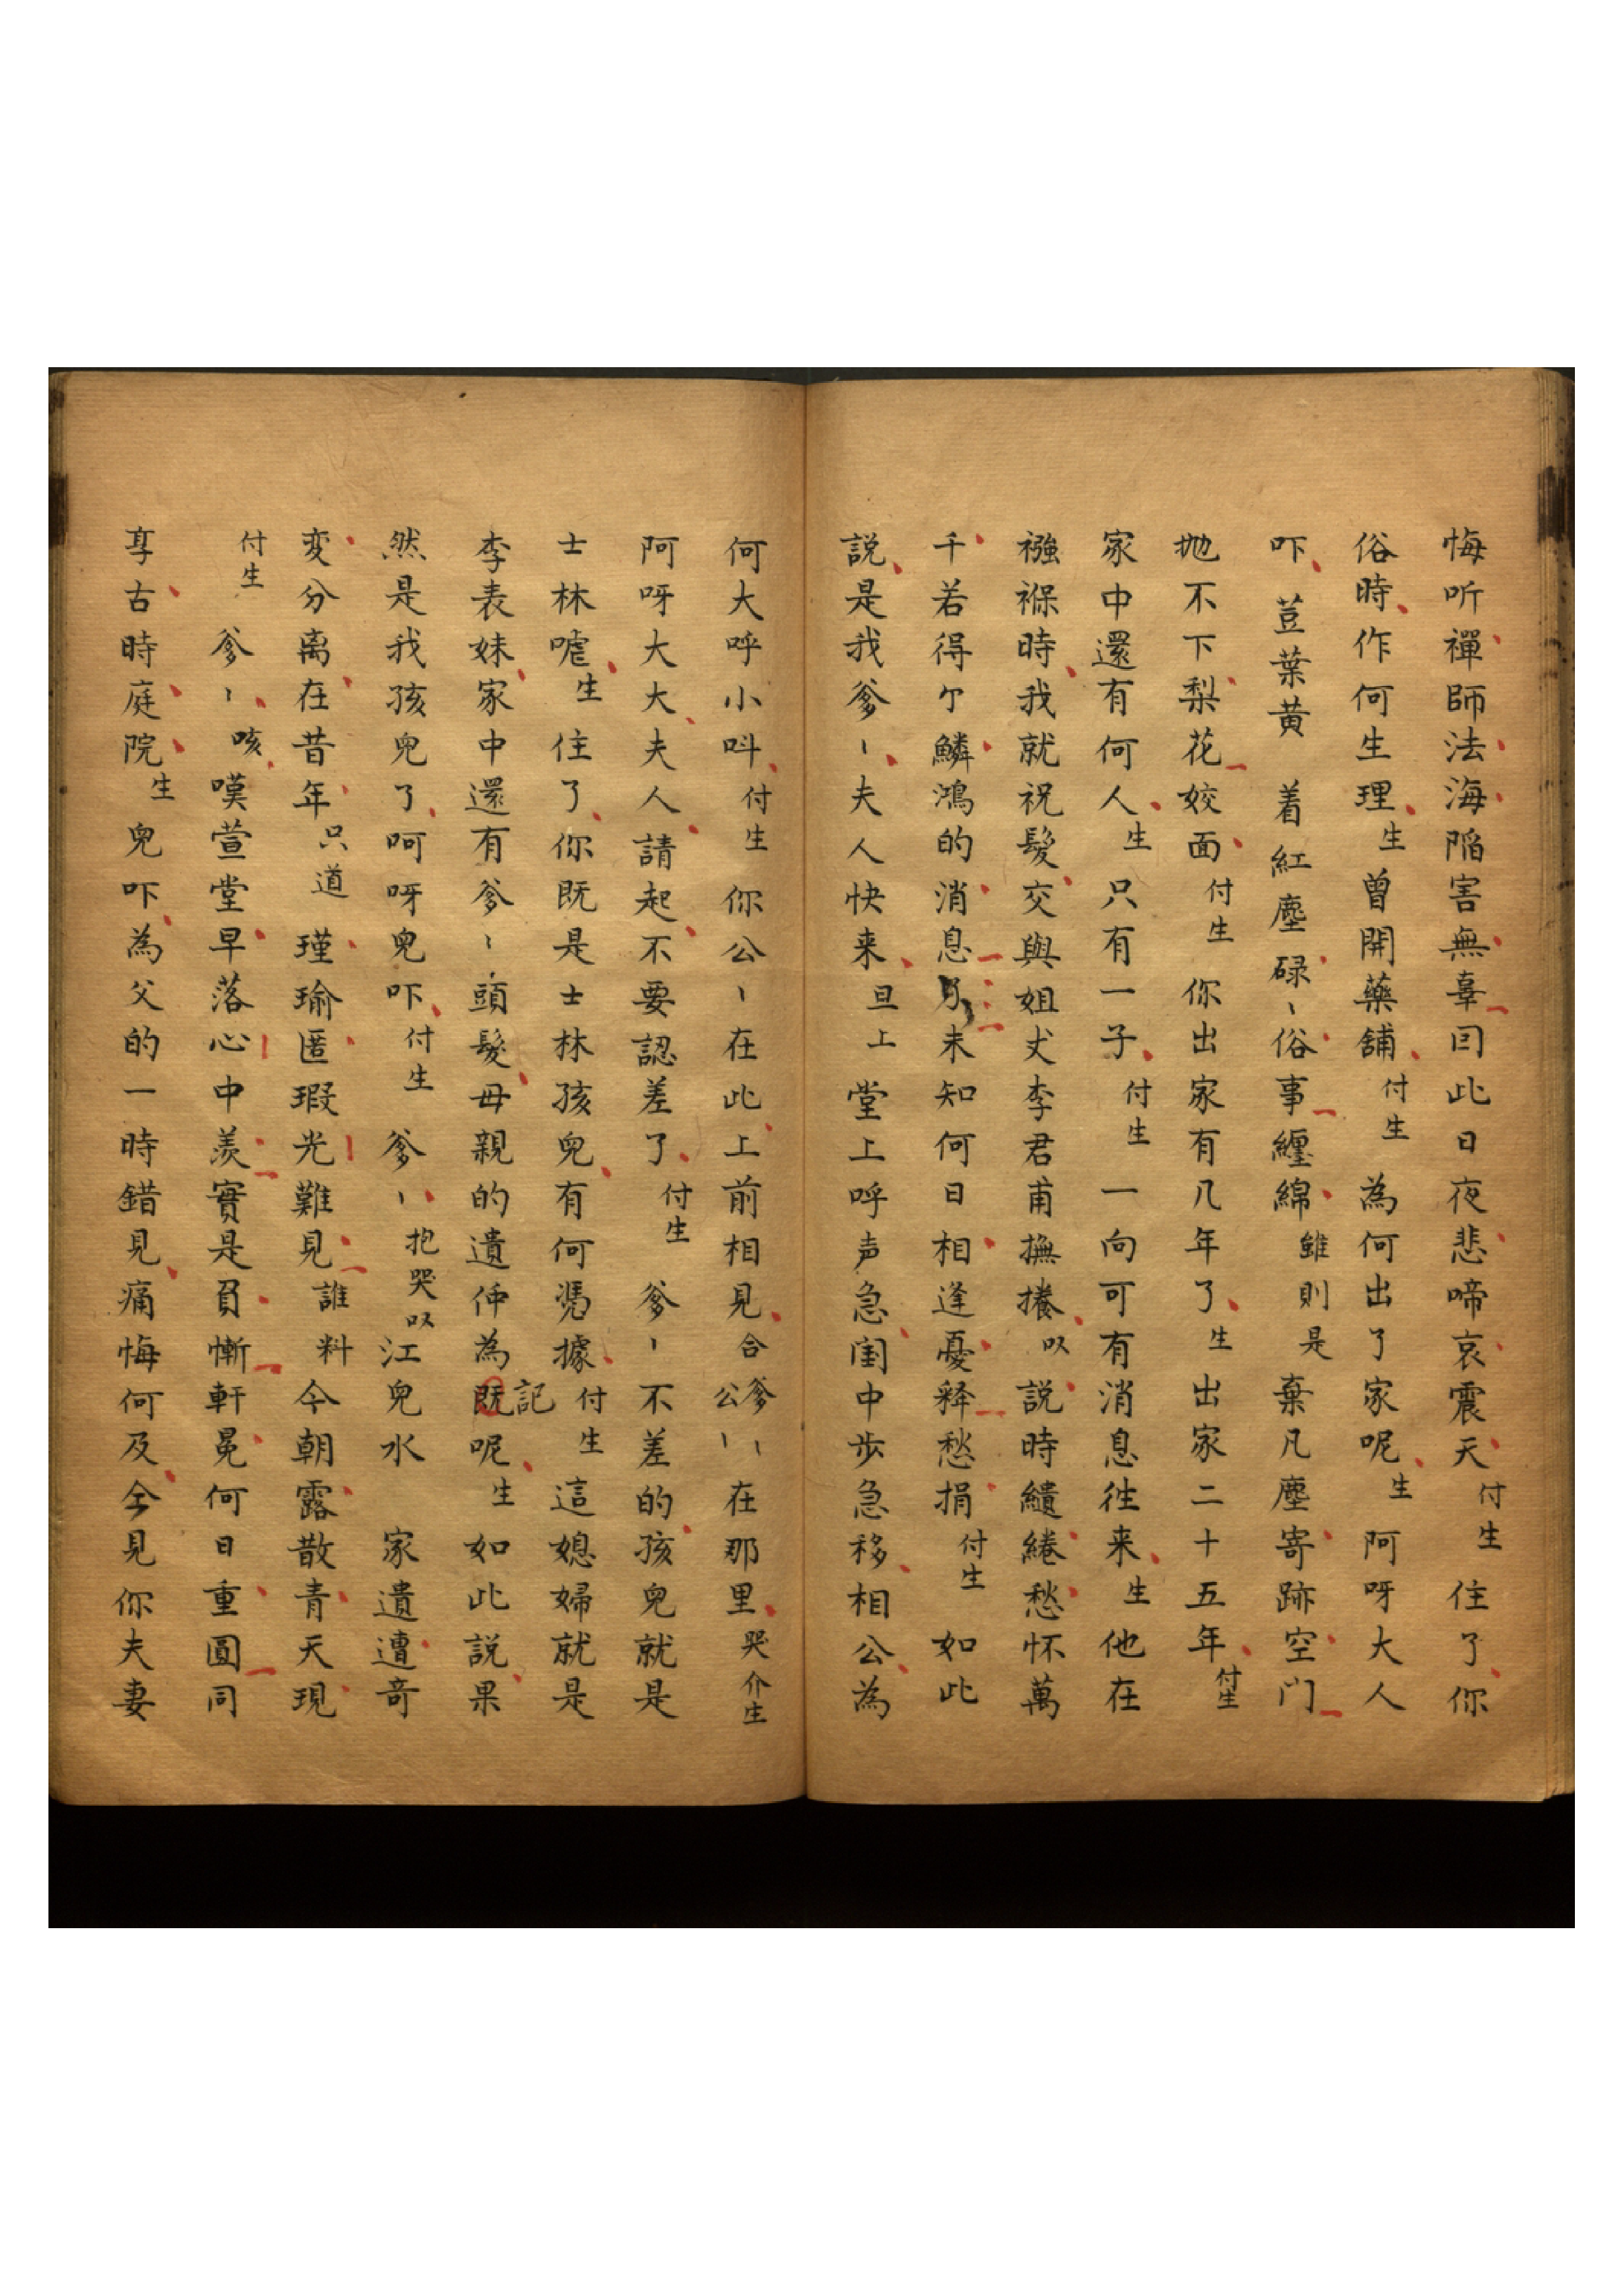 悔听禪師法海陷害無辜囙此日夜悲啼哀震天付生住了你
俗時作何生理生曾開藥舖付生為何出了家呢生阿呀大人
吓荳葉黄着紅塵碌〻俗事纏綿雖則是棄凡塵寄跡空门
抛不下梨花姣面付生你出家有几年了生出家二十五年付生
家中還有何人生只有一子付生一向可有消息徃来生他在
襁褓時我就祝髮交與姐丈李君甫撫捲以説時繾綣愁怀萬
千若得个鱗鴻的消息乃未知何日相逢憂释愁捐付生如此
説是我爹〻夫人快来旦上堂上呼声急闺中步急移相公為
何大呼小呌付生你公〻在此上前相見合爹〻公〻在那里哭介生
阿呀大大夫人請起不要認差了付生爹〻不差的孩兒就是
士林嘘生住了你既是士林孩兒有何憑據付生這媳婦就是
李表妹家中還有爹〻頭髮母親的遺伸為既記呢生如此説果
然是我孩兒了呵呀兒吓付生爹〻抱哭以江兒水家遺遭奇
変分离在昔年只道瑾瑜匿瑕光難見誰料今朝露散青天現
付生爹〻咳嘆萱堂早落心中羨實是負慚軒冕何日重圓同
享古時庭院生兒吓為父的一時錯見痛悔何及今見你夫妻